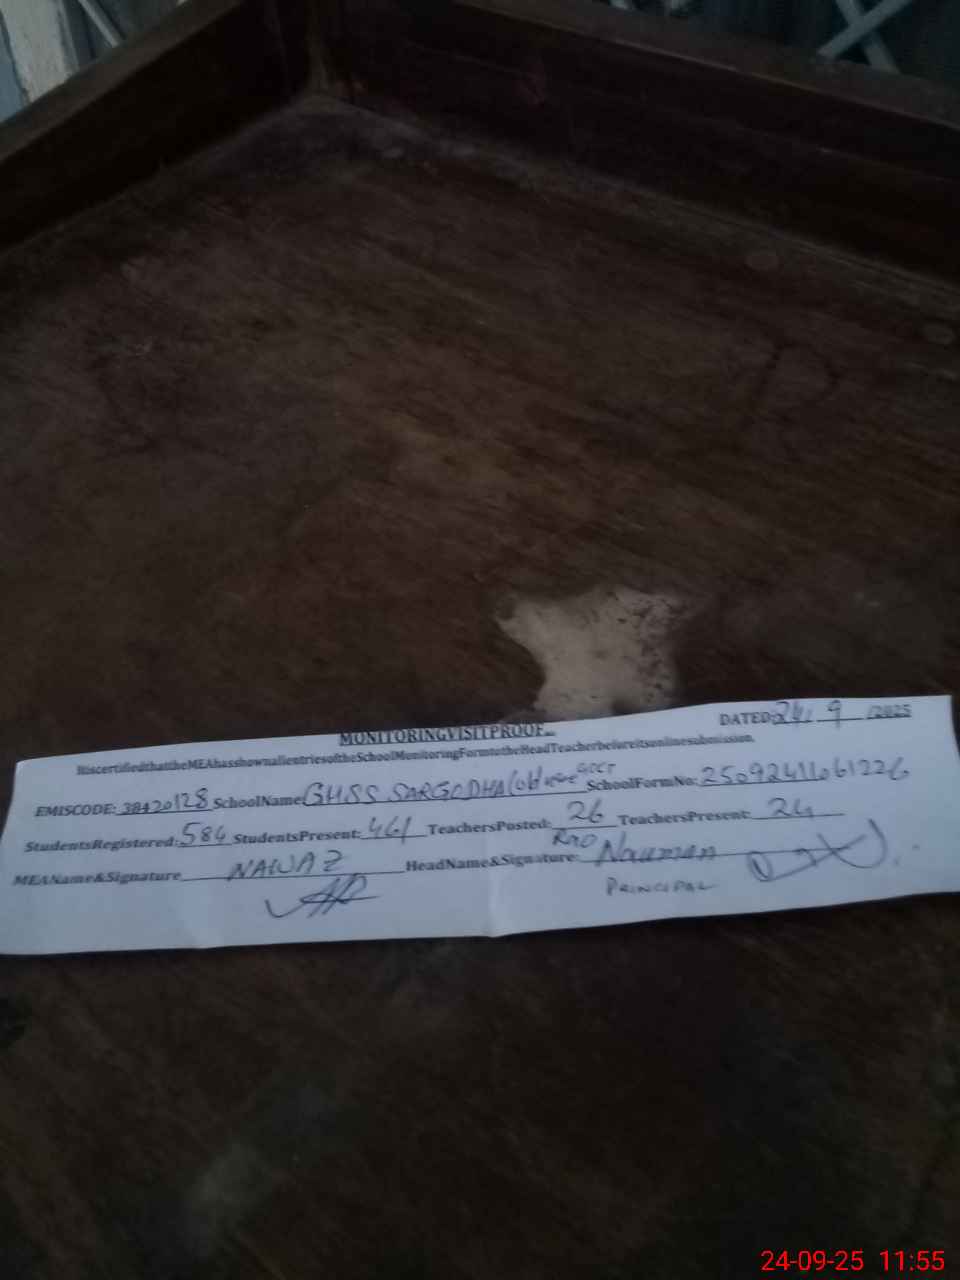 MONITORINGVISITPROOF
DATED 24/ 9 /2025
ItiscertifiedthattheMEAhasshownallentriesoftheSchoolMonitoringFormtotheHeadTeacherbeforeitsonlinesubmission.
EMISCODE: 38420128 SchoolName GHSS SARGODHA SchoolFormNo: 25092411061226
StudentsRegistered: 584 StudentsPresent: 461 TeachersPosted: 26 TeachersPresent: 24
MEAName&Signature NAWAZ HeadName&Signature: Rao Nauman
PRINCIPAL
24-09-25 11:55